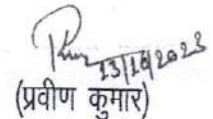 13/10/2023
(प्रवीण कुमार)